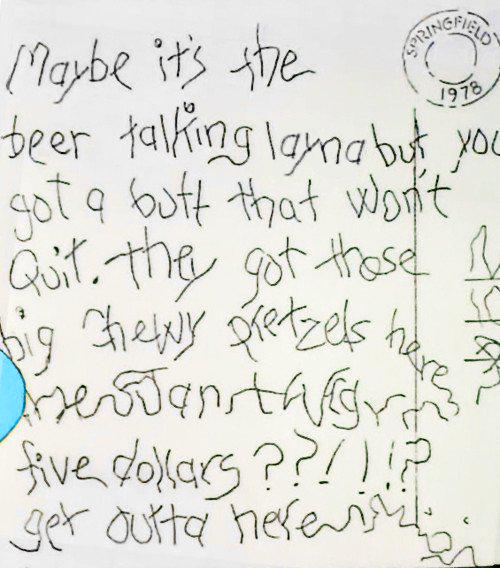 SPRINGFIELD
1978
Maybe it's the
beer talking layna but you
got a butt that won't
Quit. they got those
big chewy pretzels here
five dollars??!!!?
get outta here